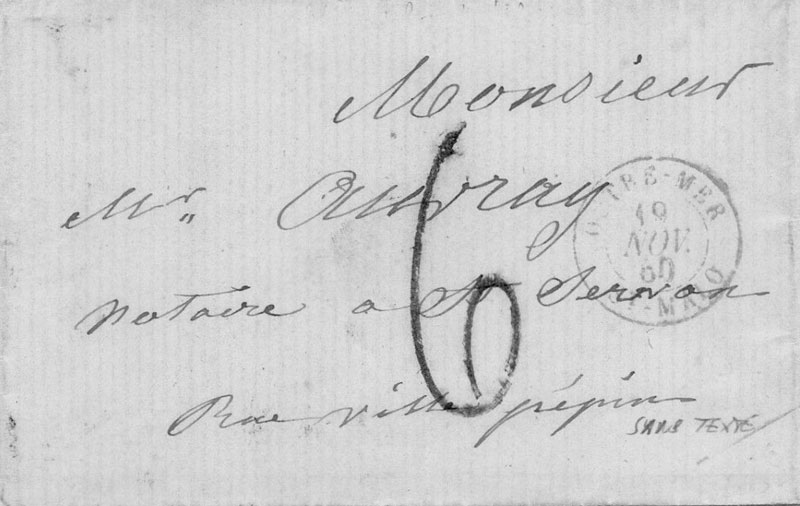 Monsieur
Mr Auvray
notaire a St Servan
Rue ville pépin
6
OUTRE-MER
19
NOV.
60
ST-MALO
SANS TEXTE